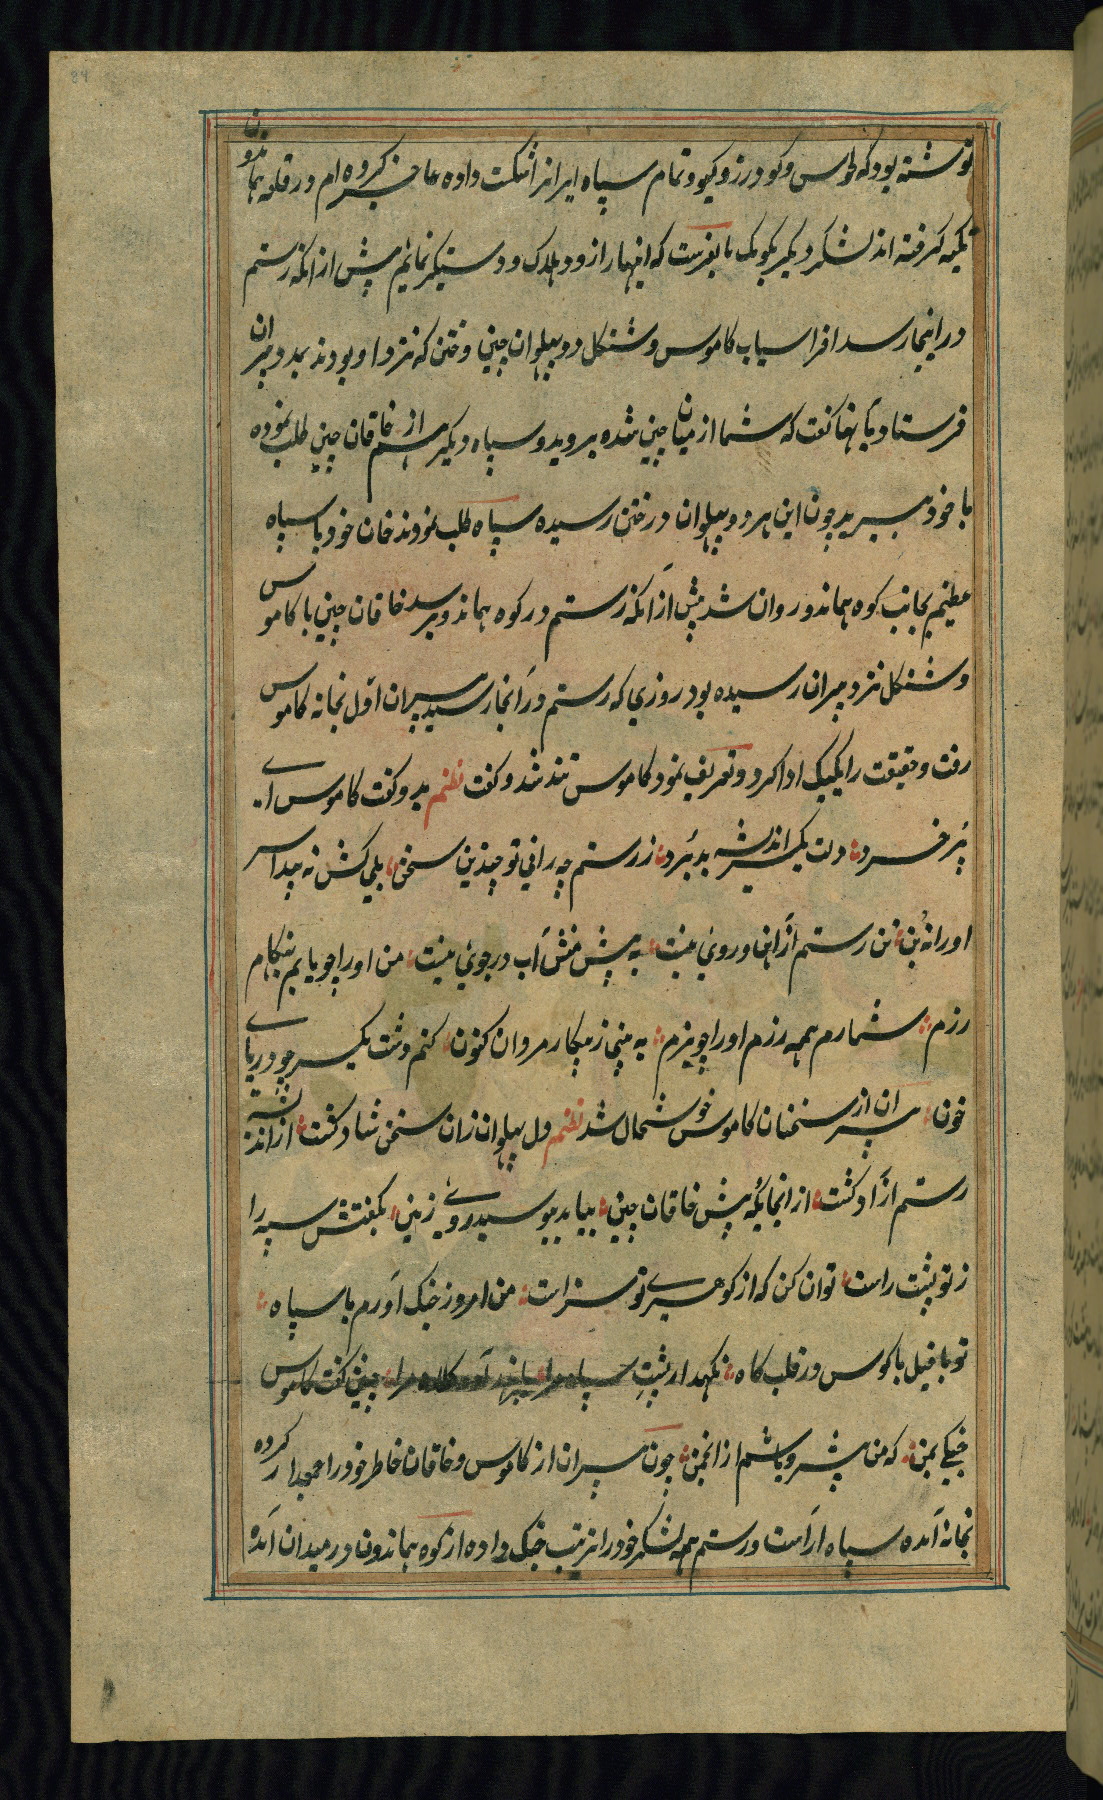 نوشته بود که طوس و گودرز و گیو و تمام سپاه ایران را شکست داده عاجز کرده ام در قلعه هماندون
تکیه گرفته اند لشکر دیگر بکومک ما بفرست که اینها را زود هلاک و دستگیر نمائیم پیش از آنکه رستم
در اینجا رسد افراسیاب کاموس و شنگل دو پهلوان چینی و ختن که نزد او بودند بمدد پیران
فرستاد و بآنها گفت که شما از میان چین شده بروید و سپاه دیگر هم از خاقان چین طلب نموده
با خود ببرید چون این هر دو پهلوان در ختن رسیده سپاه طلب نمودند خان خود با سپاه
عظیم بجانب کوه هماندو روان شد پیش از آنکه رستم در کوه هماندو برسد خاقان چین با کاموس
و شنگل نزد پیران رسیده بود روزی که رستم در آنجا رسید پیران اول بخانه کاموس
رفت و حقیقت را یکیک ادا کرد و تعریف نمود کاموس تند شد و گفت نظم بدو گفت کاموس ای
پر خرد دلت یکسر اندیشه بد برد ز رستم چه رانی تو چندین سخن بلی کش نه پیدا سر
او را نه بن تن رستم از آهن و روی نیست به پیش منش آب در جوی نیست من او را چو یابم بهنگام
رزم شمارم همه رزم او را چو بزم به بینی ز پیکار مردان کنون کنم دشت یکسر چو دریای
خون پیران از سخنان کاموس خوشحال شد نظم دل پهلوان زان سخن شاد گشت از اندیشه
رستم آزاد گشت از آنجایگه پیش خاقان چین بیامد ببوسید روی زمین بگفتش سپه را
ز تو پشت راست توان کن که از گوهر تو سزاست من امروز جنگ آورم با سپاه
تو با فیل با کوس در قلب گاه نگهدار پشت سپاه مرا بابر اندر آور کلاه مرا چنین گفت کاموس
جنگی بمن که من پیشرو باشم از انجمن چون پیران از کاموس و خاقان خاطر خود را جمع کرده
بخانه آمده سپاه آراست و رستم همه لشکر خود را ترتیب جنگ داده از کوه هماندون در میدان آمده